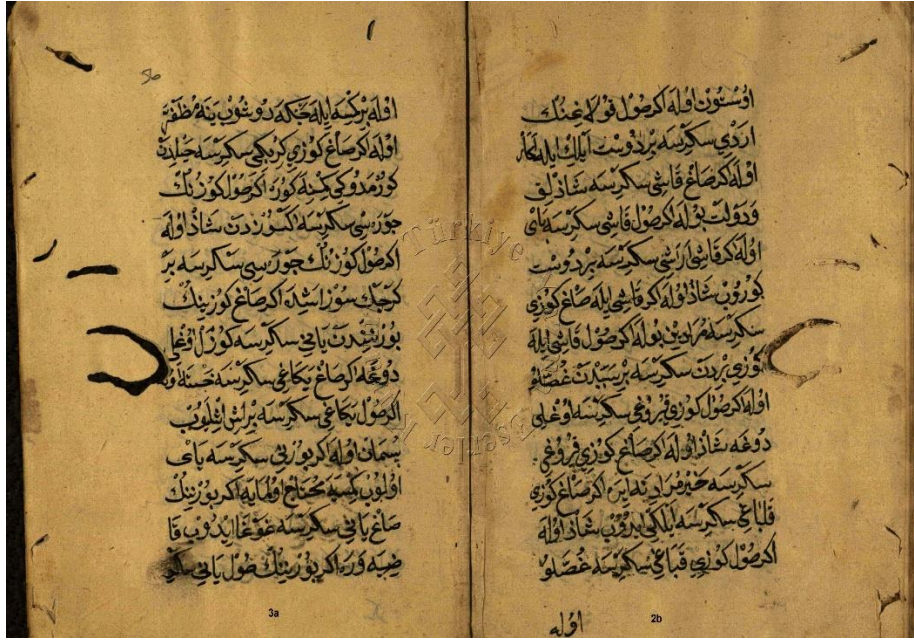 اوستون اوله اكر صول قولاغنك
اردي سكرسه بر دوست ايلك ايله
اوله اكر صاغ قاشى سكرسه شاذلق
ودولت بوله اكر صول قاشى سكرسه باى
اوله اكر قاشى اراسى سكرسه بر دوست
كوروب شاذ اوله اكر قاشى ايله صاغ كوزى
سكرسه مرادين بوله اكر صول قاشى ايله
كوزى بردن سكرسه بر سببدن غصه
اوله اكر صول كوزى قيروغى سكرسه اوغلى
دوغه شاذ اوله اكر صاغ كوزى قيروغى
سكرسه خير مراد اكر صاغ كوزى
قباغى سكرسه ايلكى شاذ اوله
اكر صول كوزى قباغى سكرسه غصه لو
اوله
2b
56
اوله بر كسه ايله جنكه دوشوب ينه مظفر
اوله اكر صاغ كوزى كربكى سكرسه
كورمدوكى كسنه كوره اكر صول كوزنك
جوره سى سكرسه شاذ اوله
اكر صول كوزنك جوره سى سكرسه بر
كرجك سوز اشده اكر صاغ كوزينك
بورنندن يانى سكرسه كوزل اوغلى
دوغه اكر صاغ يكاغى سكرسه خسته اوله
اكر صول يكاغى سكرسه بر ايش اشليوب
بشمان اوله اكر بورنى سكرسه باى
اولوب كسيه محتاج اولميه اكر بورنينك
صاغ يانى سكرسه غوغا ايدوب قا
ضيه وره اكر بورنينك صول يانى سكر
3a
Türkiye